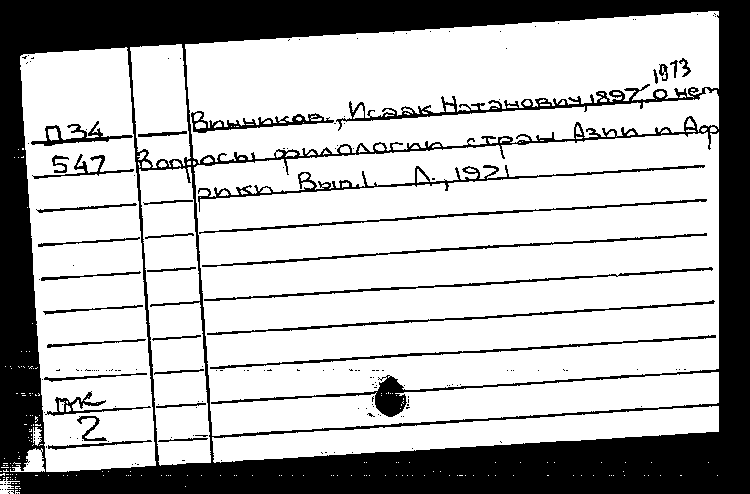 1973
П34 Винников, Исаак Натанович, 1897-, о нем
547 Вопросы филологии стран Азии и Аф
рики. Вып.1. Л., 1971
2